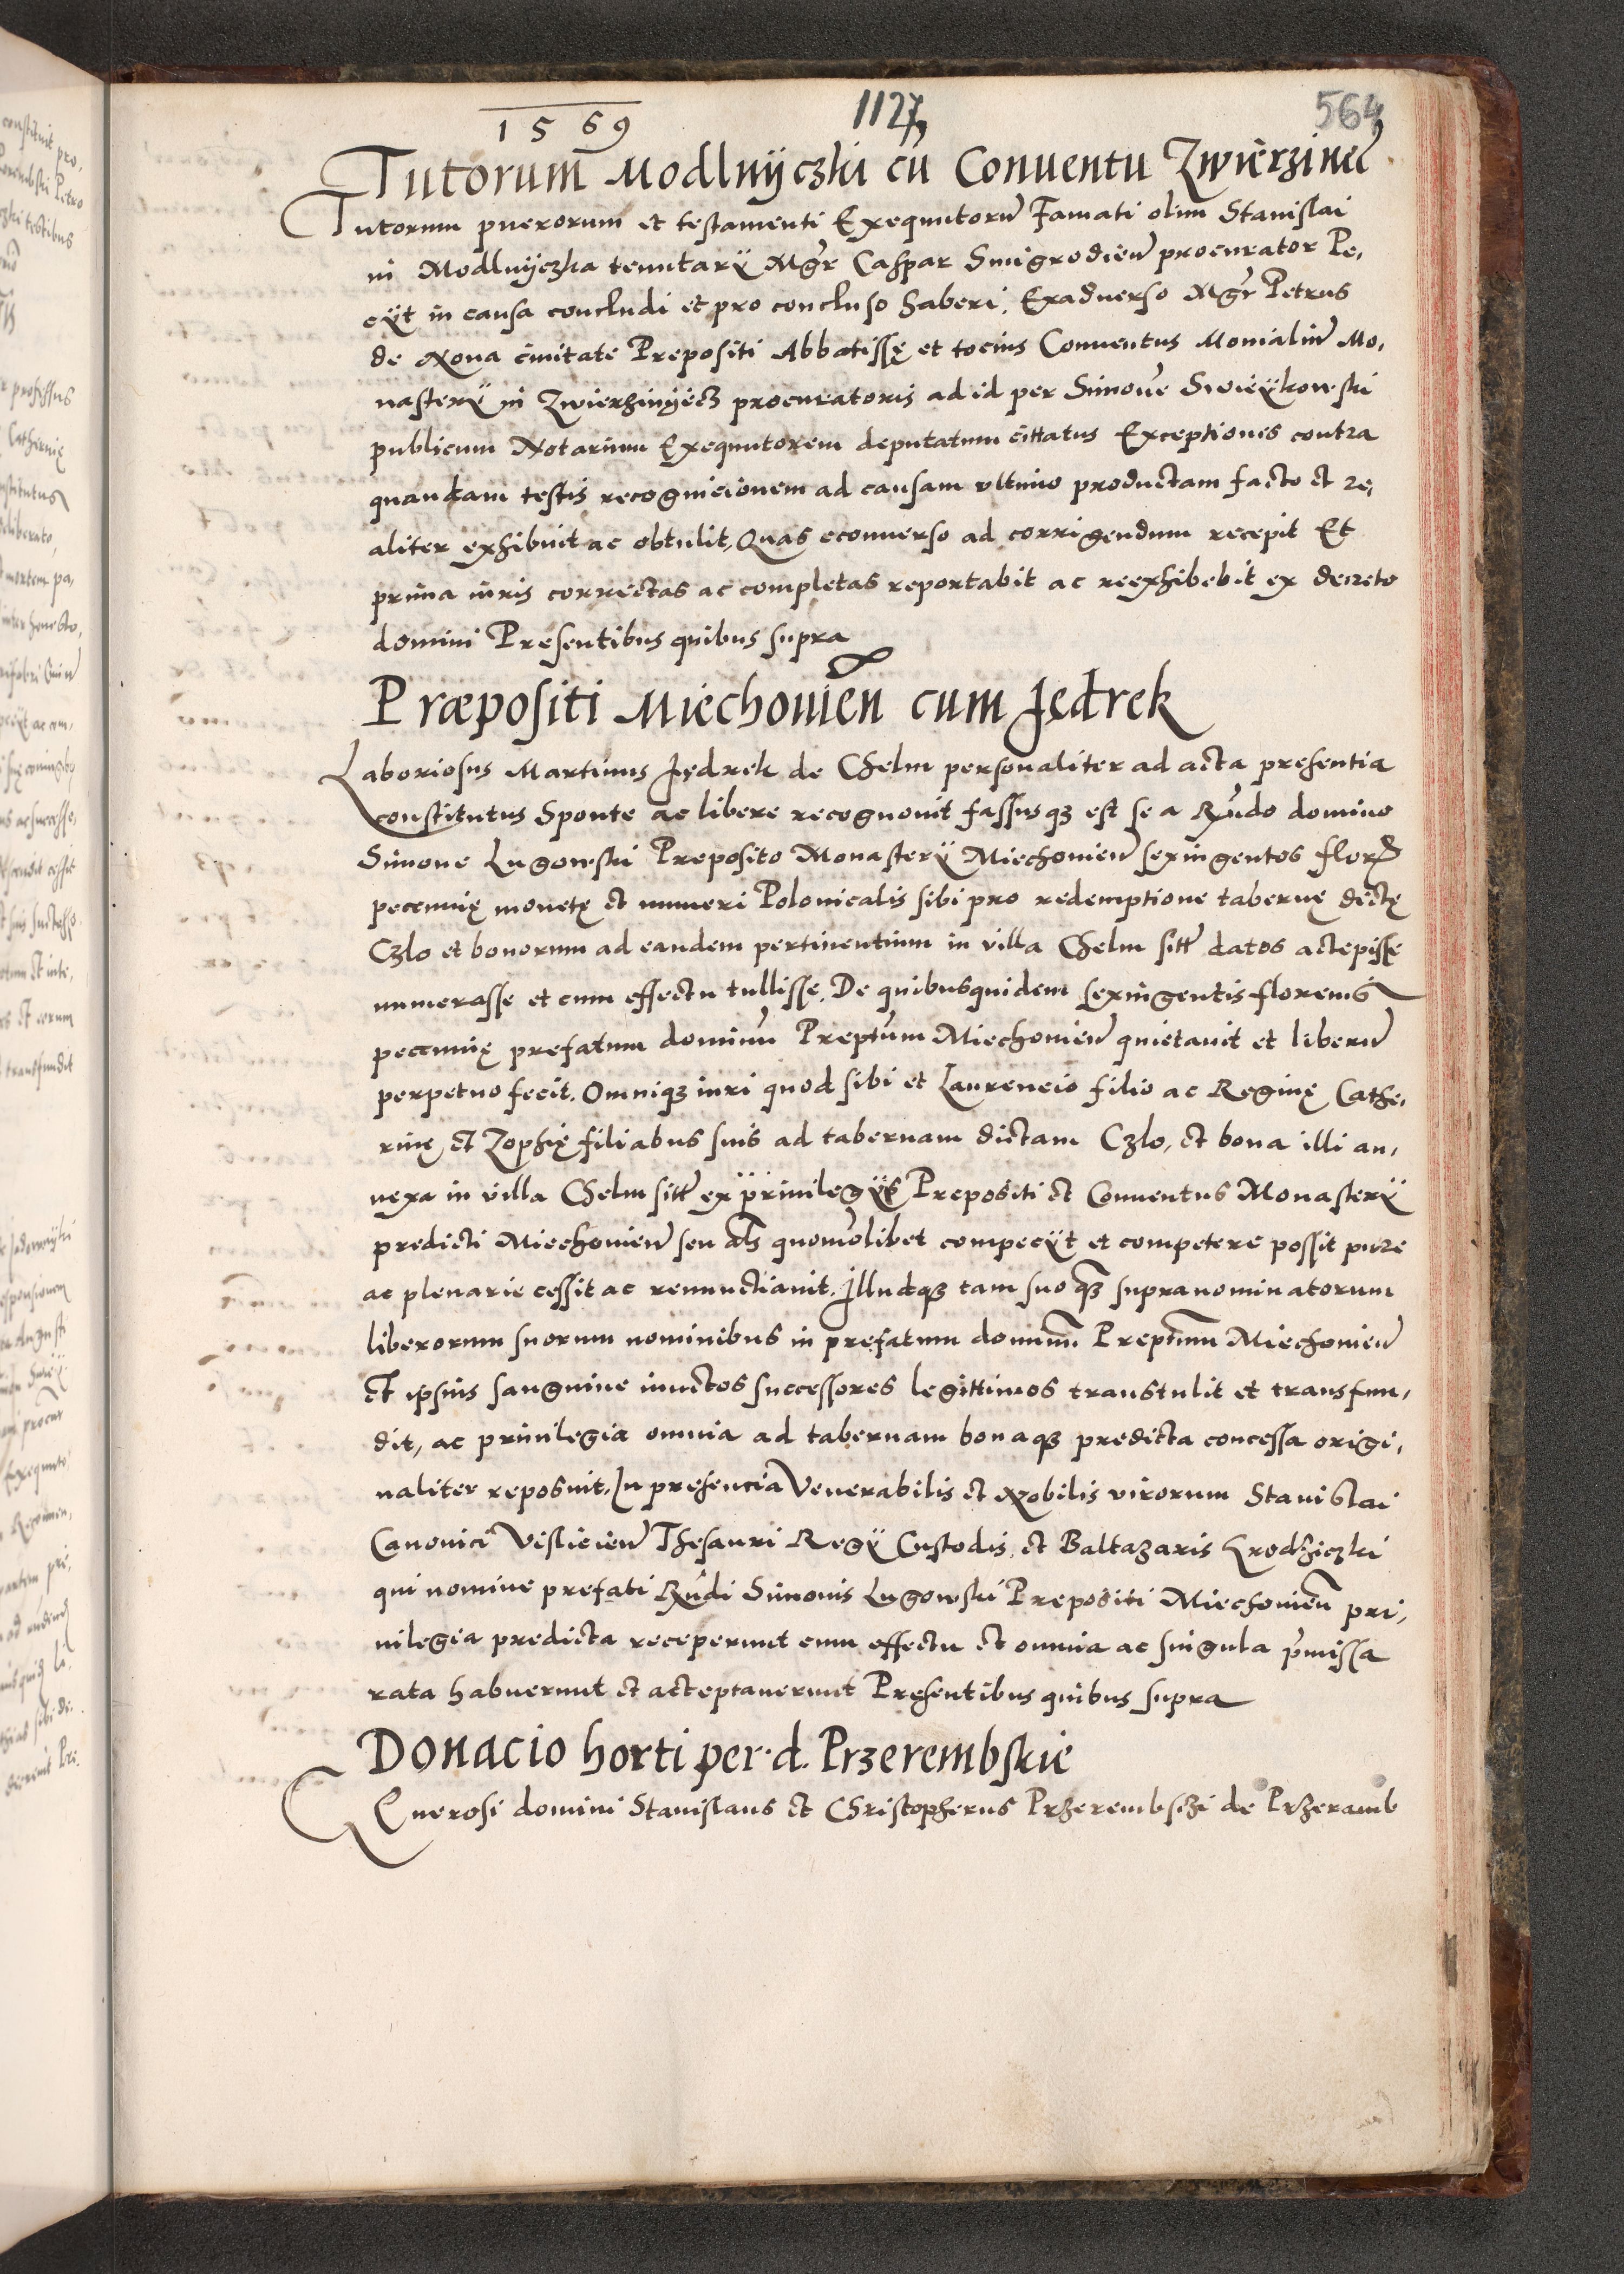 1569
1127
564
Tutorum Modlnyczki cū Conuentu Zwierzinec
Tutorum puerorum et testamenti Exequutorū Famati olim Stanislai
in Modlnyczka tenutarÿ Mgr̄ Caspar Smigrodien̄ procurator Pe,
cÿt in causa concludi et pro concluso haberi. Exaduerso Mgr̄ Petrus
de Noua ciuitate Prepositi Abbatissę et tocius Conuentus Monialiū Mo,
nasterÿ in Zwierzinyecz procuratoris ad id per Simonē Swieÿkowski
publicum Notarium Exequutorem deputatum cittatus Exceptiones contra
quandam testis recognicionem ad causam vltimo productam facto et re,
aliter exhibuit ac obtulit, Quas econuerso ad corrigendum recepit Et
prima iuris correctas ac completas reportabit ac reexhibebit ex decreto
domini Presentibus quibus supra
Præpositi Miechouien̄ cum Jędrek
Laboriosus Martinus Jędrek de Chelm personaliter ad acta presentia
constitutus Sponte ac libere recognouit fassusqz est se a Rn̄do domino
Simone Lugowski Preposito Monasterÿ Miechouien̄ sexingentos flor̄
pecunię monetę et numeri Polonicalis sibi pro redemptione tabernę dictę
Czlo et bonorum ad eandem pertinentium in villa Chelm sitt̄ datos accepisse
numerasse et cum effectu tullisse. De quibusquidem sexingentis florenis
pecunię prefatum dominū Prept̄um Miechouien̄ quietauit et liberū
perpetuo fecit. Omniqz iuri quod sibi et Laurencio filio ac Reginę Cathe,
rinę et Zophię filiabus suis ad tabernam dictam Czlo, et bona illi an,
nexa in villa Chelm sitt̄ ex priuilegÿs Prepositi et Conuentus Monasterÿ
predicti Miechouien̄ seu al̄s quomōlibet compecÿt et competere possit pure
ac plenarie cessit ac renunctiauit. Illudqz tam suo qz̄ supranominatorum
liberorum suorum nominibus in prefatum dominū Prept̄um Miechouien̄
et ipsius sanguine iunctos successores legittimos transtulit et transfun,
dit, ac priuilegia omnia ad tabernam bonaqz predicta concessa origi,
naliter reposuit. In presencia Venerabilis et Nobilis virorum Stanislai
Canonici Vislicien̄ Thesauri Regÿ Custodis, et Baltazaris Grodziczki
qui nomine prefati Rn̄di Simonis Lugowski Prepositi Miechouien̄ pri,
uilegia predicta receperunt cum effectu et omnia ac singula p̄missa
rata habuerunt et acceptauerunt Presentibus quibus supra
Donacio horti per d. Przerembskie
Generosi domini Stanislaus et Christopherus Przerembsczi de Przeramb